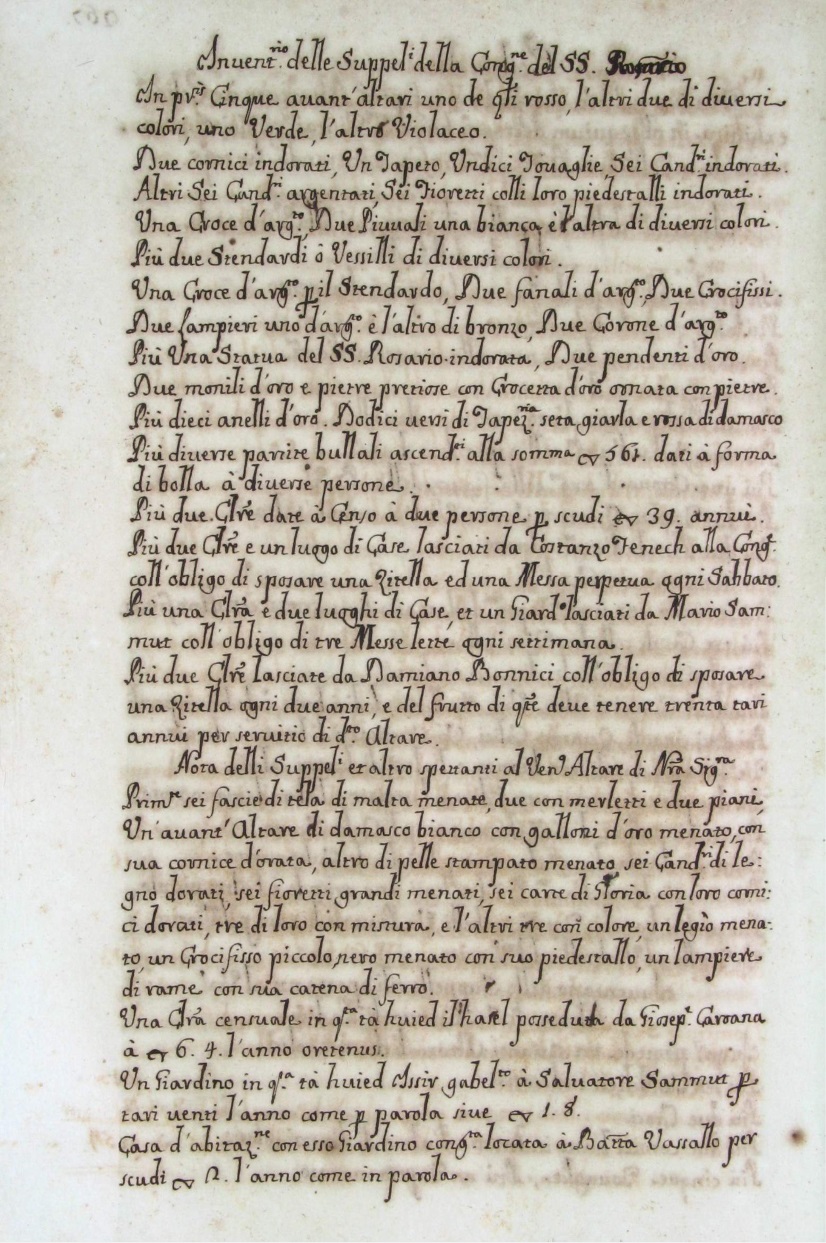 Invent.rio delle Suppel.i della Cong.ne del SS. Rosario
In p.ris Cinque auant'altari uno de q̃li rosso, l'altri due di diuersi
colori, uno Verde, l'altro Violaceo.
Due cornici indorati, Un Tapeto, Undici Touaglie Sei Cand.ri indorati.
Altri Sei Cand.ri argentati, Sei Fioretti colli loro piedestalli indorati.
Una Croce d'arg.to, Due Piuuali una bianca, è l'altra di diuersi colori.
Più due Stendardi ò Vessilli di diuersi colori.
Una Croce d'arg.to p il Stendardo, Due fanali d'arg.to, Due Crocifissi.
Due lampieri uno d'arg.to è l'altro di bronzo, Due Corone d'arg.to
Più Una Statua del SS. Rosario indorata, Due pendenti d'oro.
Due monili d'oro e pietre pretiose con Crocetta d'oro ornata con pietre.
Più dieci anelli d'oro. Dodici uersi di Tapez.ria seta giarla e rossa di damasco
Più diuerse partite bullali ascend.ti alla somma 561. dati à forma
di bolla à diuerse persone.
Più due Clr̃e date à Censo à due persone p scudi 39. annui.
Più due Clr̃e e un luogo di Case lasciati da Costanzo Fenech alla Cong.e
coll'obligo di sposare una Zitella ed una Messa perpetua ogni Sabbato.
Più una Clr̃a e due luoghi di Case, et un Giard.o lasciati da Mario Sam:
mut coll'obligo di tre Messe lette ogni settimana.
Più due Clr̃e lasciate da Damiano Bonnici coll'obligo di sposare
una Zitella ogni due anni, e del frutto di q̃te deue tenere trenta tari
annui per seruitio di d.to Altare.
Nota delli Suppel.i et altro spettanti al Ven. Altare di Nr̃a Sig.ra
Prim.te sei fascie di tela di malta menate, due con merletti e due piani,
Un'auant'Altare di damasco bianco con galloni d'oro menato, con
sua cornice d'orata, altro di pelle stampato menato, sei Cand.ri di le:
gno dorati, sei fioretti grandi menati, sei carte di Gloria con loro corni:
ci dorati, tre di loro con mistura, e l'altri tre con colore, un legìo mena:
to, un Crocifisso piccolo nero menato con suo piedestallo, un lampiere
di rame con sua catena di ferro.
Una Clr̃a censuale in q.ta tà huied il'hasel posseduta da Giosep.e Caruana
à 6. 4. l'anno oretenus.
Un Giardino in q.ta tà huied Issir gabel.to à Saluatore Sammut p
tari uenti l'anno come p parola siue 1. 8.
Casa d'abitaz.ne con esso Giardino cong.ta locata à Batta Vassallo per
scudi l'anno come in parola.